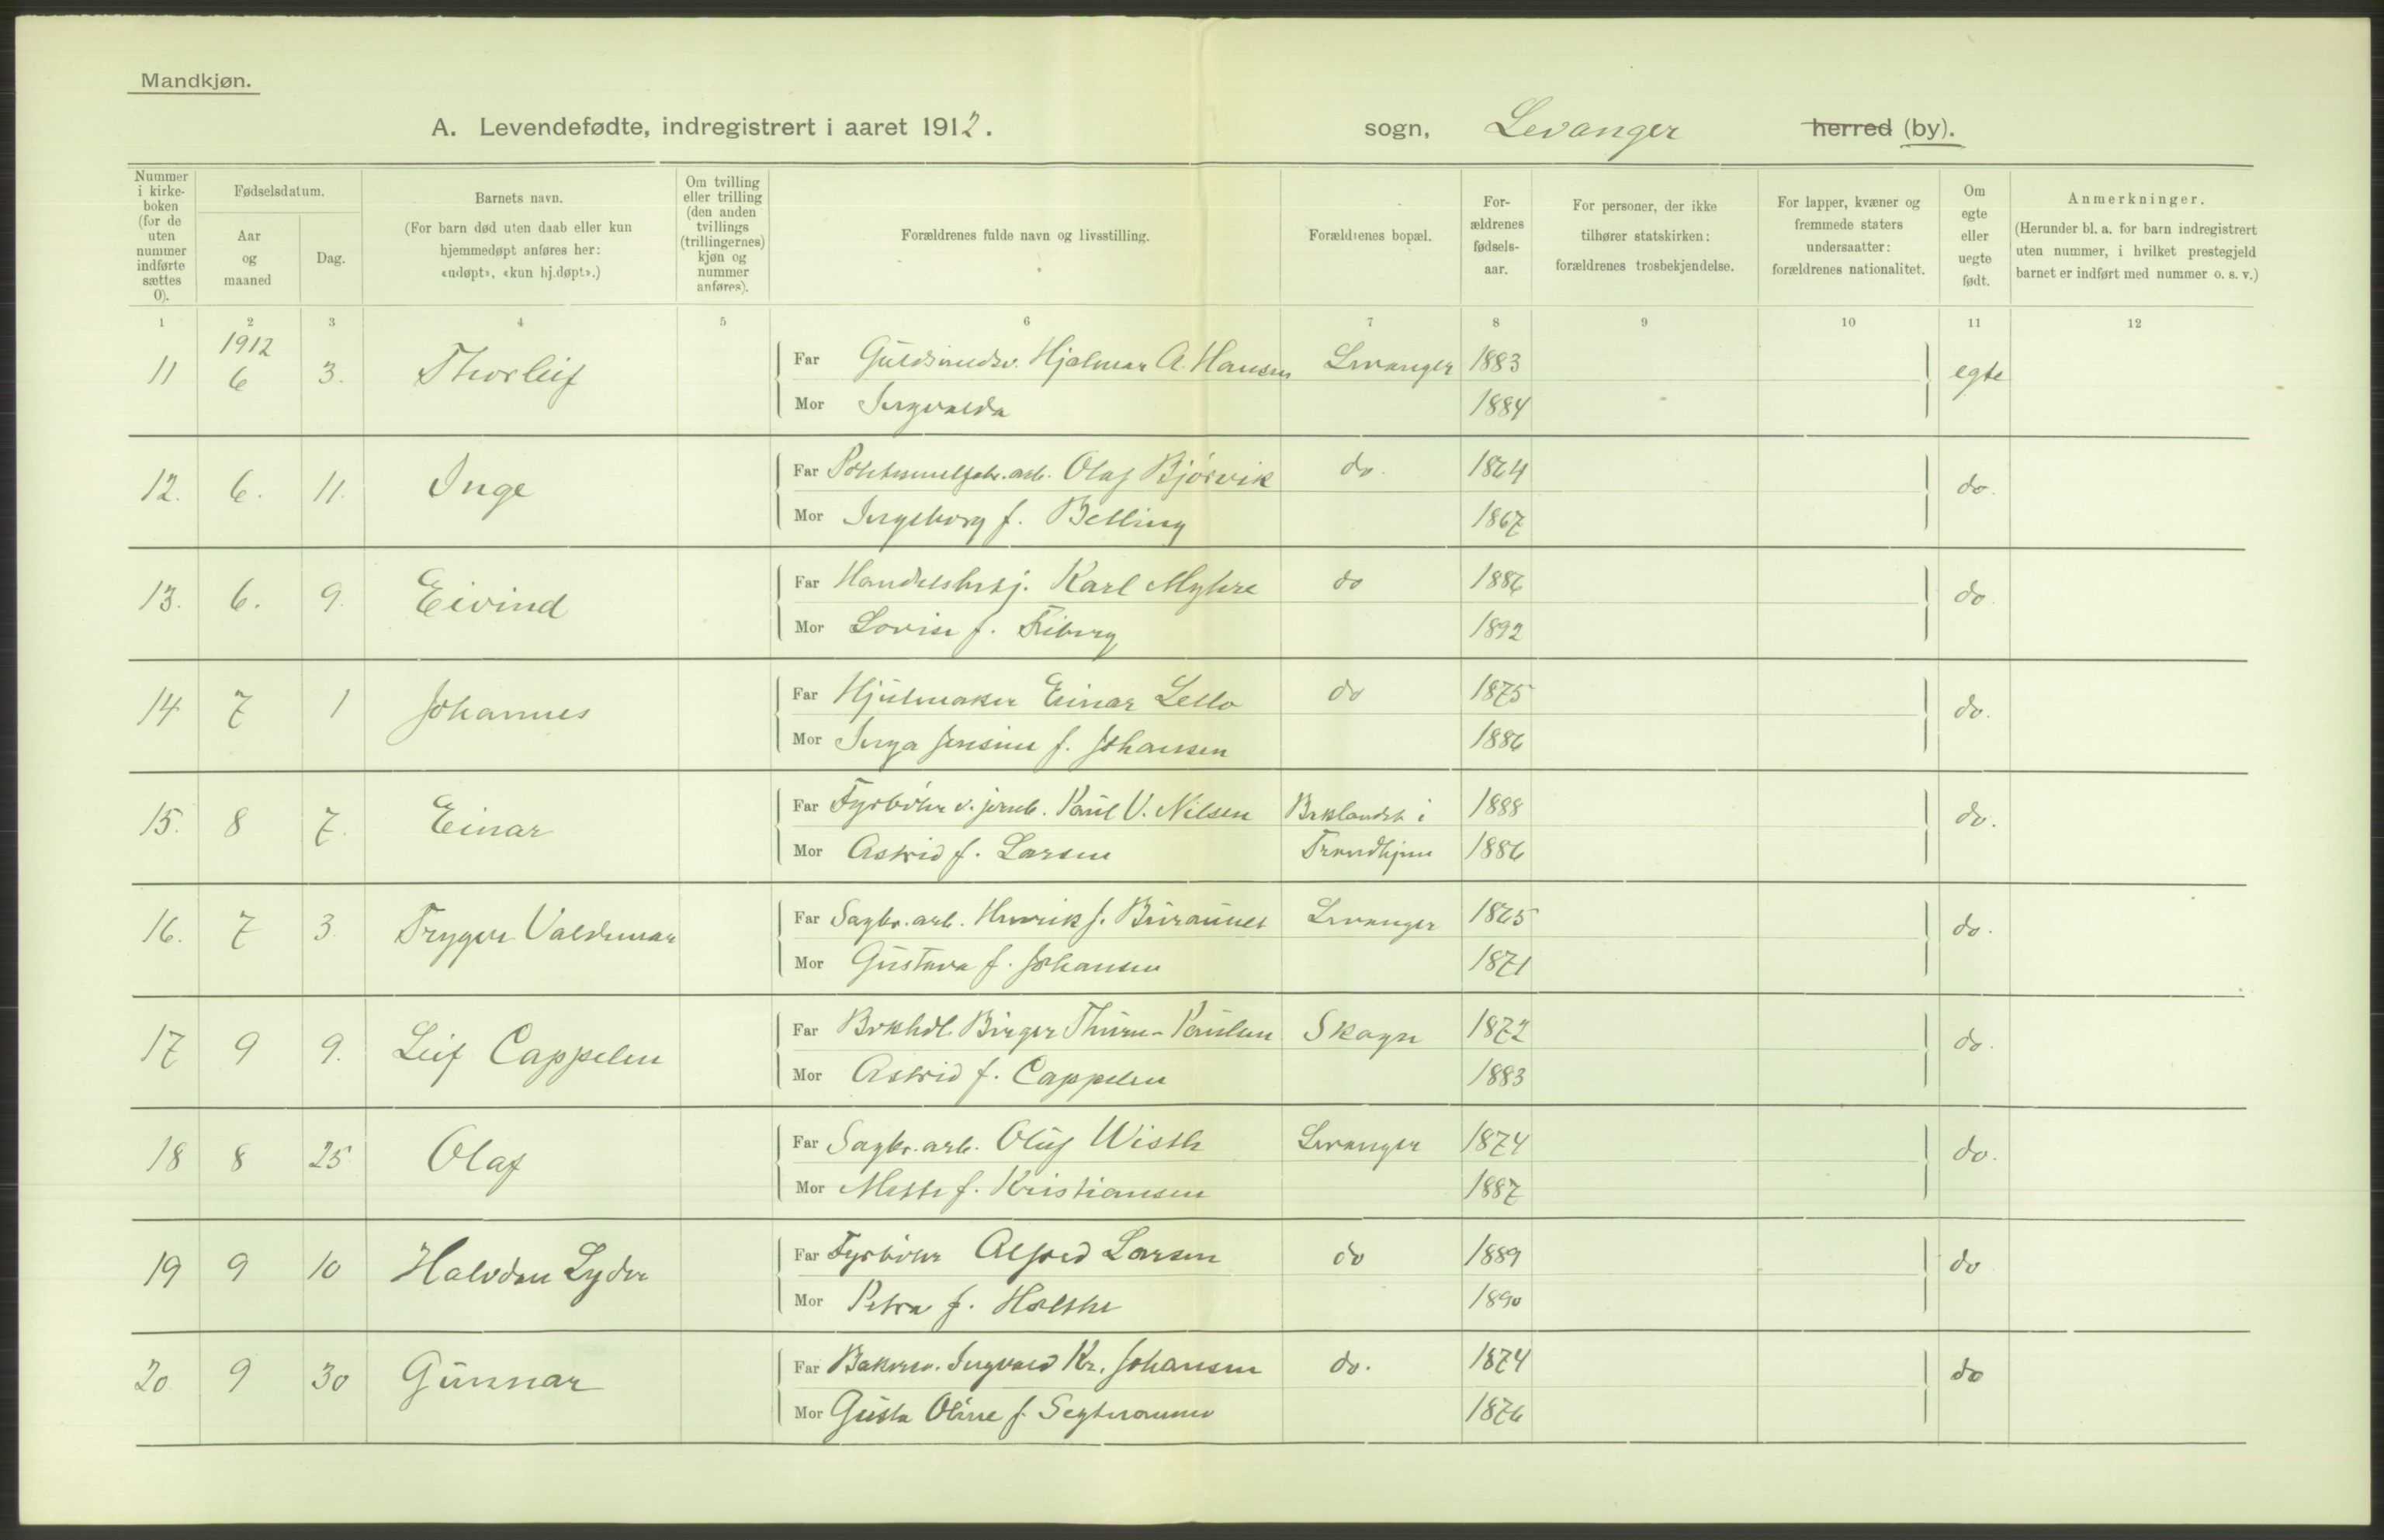 Mandkjøn.
A. Levendefødte, indregistrert i aaret 1912. sogn, Levanger herred (by).
Nummer i kirkeboken (for de uten nummer indførte sættes 0).
Fødselsdatum.
Aar og maaned
Dag.
Barnets navn.
(For barn død uten daab eller kun hjemmedøpt anføres her: «udøpt», «kun hj.døpt».)
Om tvilling eller trilling (den anden tvillings (trillingernes) kjøn og nummer anføres).
Forældrenes fulde navn og livsstilling.
Forældrenes bopæl.
Forældrenes fødselsaar.
For personer, der ikke tilhører statskirken: forældrenes trosbekjendelse.
For lapper, kvæner og fremmede staters undersaatter: forældrenes nationalitet.
Om egte eller uegte født.
Anmerkninger.
(Herunder bl. a. for barn indregistrert uten nummer, i hvilket prestegjeld barnet er indført med nummer o. s. v.)
1 2 3 4 5 6 7 8 9 10 11 12
1912
11 6 3. Thorleif Far Guldsmedsv. Hjalmar A. Hansen Levanger 1883 egte
Mor Ingvalda 1884
12. 6. 11. Inge Far Olaf Bjørvik do. 1864 do.
Mor Ingeborg f. Belling 1867
13. 6. 9. Eivind Far Handelsbetj. Karl Myhre do 1886 do
Mor Lovise f. Friberg 1892
14 7 1 Johannes Far Hjulmaker Einar Lello do 1875 do.
Mor Inga Jensine f. Johansen 1886
15. 8 7. Einar Far Fyrbøter v. jernb. Paul V. Nilsen Baklandet i 1888 do.
Mor Astrid f. Larsen Trondhjem 1886
16. 7 3. Trygve Valdemar Far Sagbr. arb. Henrik J. Buraunet Levanger 1865 do.
Mor Gustava f. Johansen 1871
17 9 9. Leif Cappelen Far Bokhdl. Birger Thurn-Paulsen Skogn 1872 do.
Mor Astrid f. Cappelen 1883
18 8 25. Olaf Far Sagbr. arb. Oluf Wisth Levanger 1874 do.
Mor Mette f. Kristiansen 1887
19 9 10 Halvdan Lyder Far Fyrbøter Alfred Larsen do 1889 do
Mor Petra f. Holthe 1890
20 9 30 Gunnar Far Bakersv. Ingvald Kr. Johansen do. 1874 do
Mor Gusta Oline f. 1876